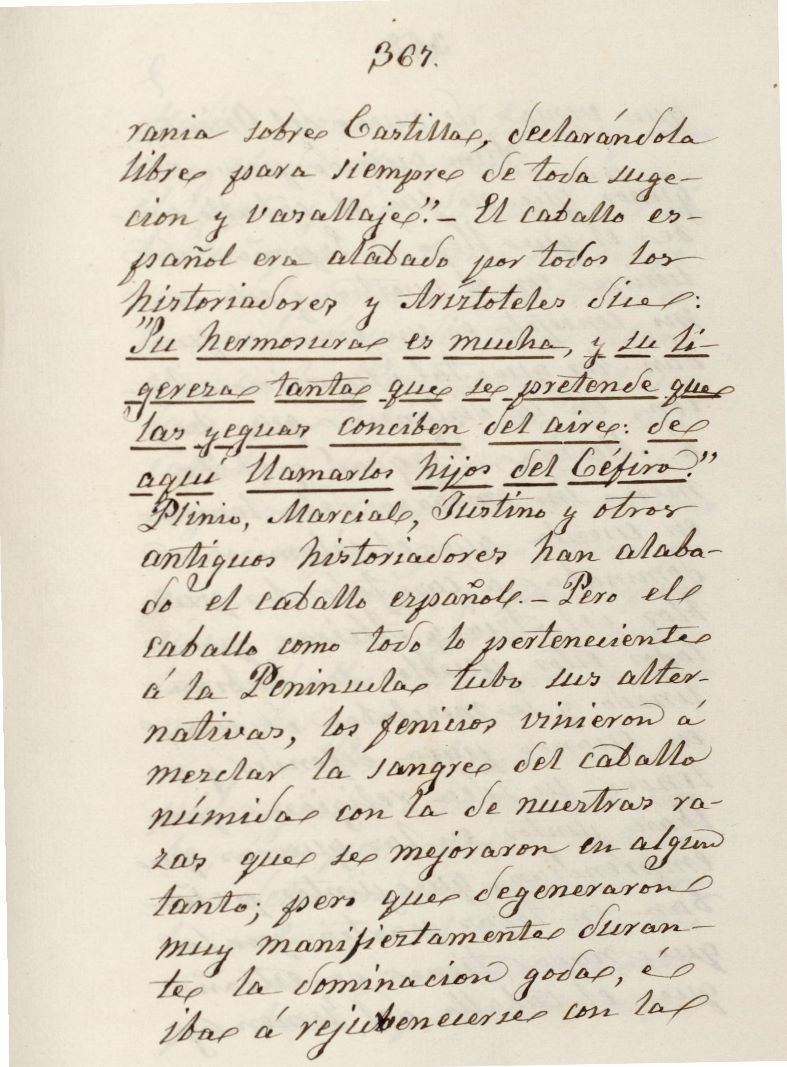 367.
rania sobre Castilla, declarándola
libre para siempre de toda suge-
cion y vasallaje".- El caballo es-
pañol era alabado por todos los
historiadores y Aristoteles dice:
"Su hermosura es mucha, y su li-
gereza tanta que se pretende que
las yeguas conciben del aire: de
aquí llamarlos hijos del Céfiro."
Plinio, Marcial, Justino y otros
antiguos historiadores han alaba-
do el caballo español.- Pero el
caballo como todo lo perteneciente
á la Peninsula tubo sus alter-
nativas, los fenicios vinieron á
mezclar la sangre del caballo
númida con la de nuestras ra-
zas que se mejoraron en algun
tanto; pero que degeneraron
muy manifiestamente duran-
te la dominacion goda, é
iba á rejuvenecerse con la